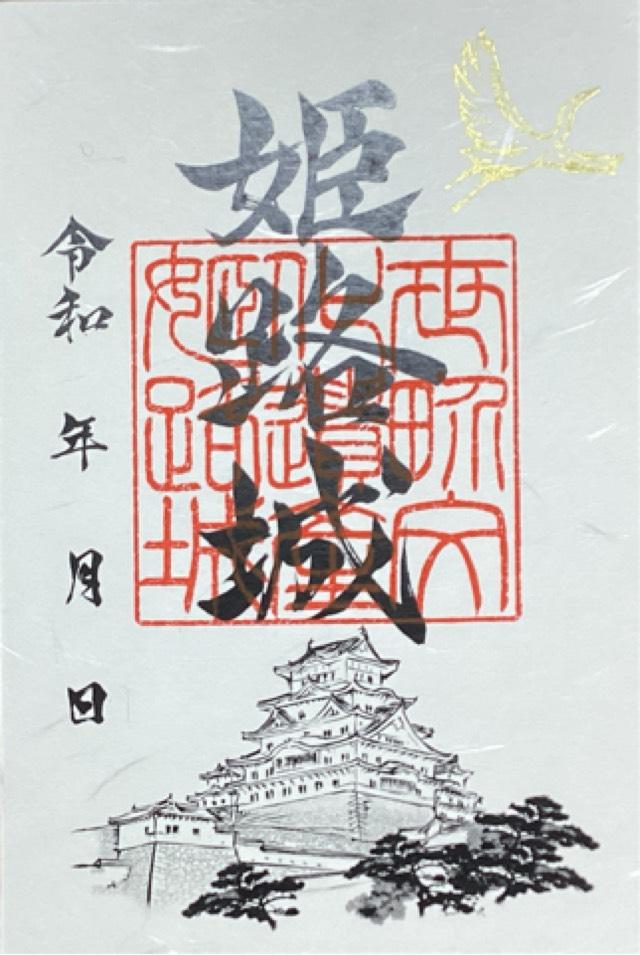 姫路城
世界文
化遺産
姫路城
令和 年 月 日